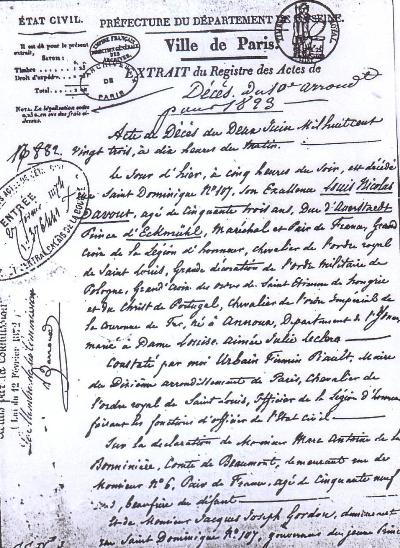 ÉTAT CIVIL.
PRÉFECTURE DU DÉPARTEMENT DE LA SEINE.
Il est dû pour le présent extrait,
SAVOIR :
Timbre
Droit d'expéd.
Total
Ville de Paris.
EXTRAIT du Registre des Actes de
Décès du 10e arrondt
pour 1823
NOTA. La légalisation
Acte de Décès du Deux Juin Mil huit cent
vingt trois, à dix heures du matin.
Le Jour d'hier, à cinq heures du Soir, est décédé
rue Saint Dominique N° 107, Son Excellence Louis Nicolas
Davout, agé de Cinquante trois ans, Duc d'Auerstaedt
Prince d'Eckmühl, Maréchal et Pair de France, Grand
Croix de la Légion d'honneur, Chevalier de l'ordre royal
de Saint Louis, Grande décoration de l'ordre Militaire de
Pologne, Grand'Croix des ordres de Saint Etienne de hongrie
et du Christ de Portugal, Chevalier de l'ordre Impérial de la
Couronne de Fer, né à Annoux, Département de l'Yonne,
marié à Dame Louise Aimée Julie Leclerc
Constaté par moi Urbain Firmin Piault, Maire
du Dixième arrondissement de Paris, Chevalier de
l'ordre royal de Saint-Louis, Officier de la Légion d'honneur
faisant les fonctions d'officier de l'Etat Civil
Sur la déclaration de Monsieur Marc Antoine de la
Bonninière, Comte de Beaumont, demeurant rue de
Monsieur N° 6, Pair de France, agé de Cinquante neuf
ans, beaufrère du défunt
Et de Monsieur Jacques Joseph Gordon, demeurant
rue Saint Dominique N° 107, gouverneur du jeune Prince
ENTRÉE
ARCHIVES
DE
PARIS
Loi du 12 Février 1872